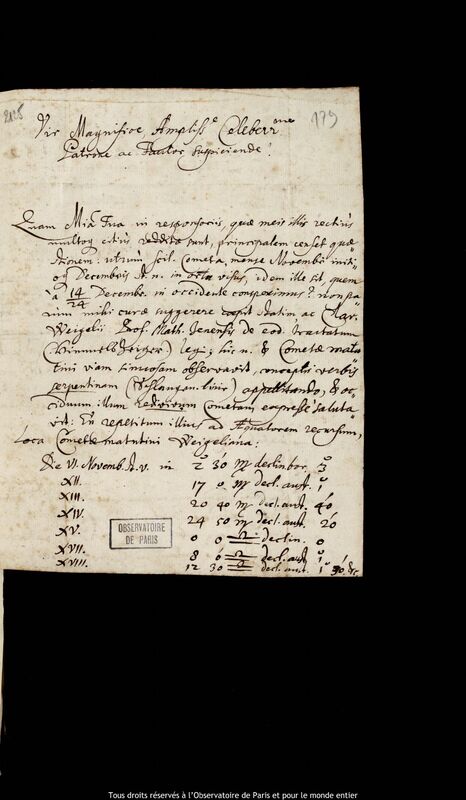 2125
179
Vir Magnifice Ampliss.e Celeberr.me
Patrone ac Fautor suspiciende!
Quam M.ia Tua in responsoriis, quæ meis illis rectius
multoq citius reddita sunt, principalem censet quæ=
stionem: utrum scil. Cometa, mense Novembr. initi=
oq Decembris st. n. in visus, idem ille sit, quem
à 14/24 Decembr. in occidente conspeximus? non pa=
rum mihi curæ suggerere cœpit statim ac Clar.
Weigelii Prof. Math. Jenensis de eod. tractatum
(Himmels Zeiger) legi; hic n. & Cometæ matu
tini viam sinuosam observavit, conceptis verbis
serpentinam (Schlangen linie) appellitando, & oc=
ciduum illum redivivum Cometam expresse saluta=
vit: En repetitum illius ad Æquatorem recursum,
Loca Cometæ matutini Weigeliana:
De VI. Novemb. st. v. in 2° 30 ♍ declin bor. 3°
XII. 17 0 ♍ decl. aust. 1°
XIII. 20 40 ♍ decl. aust. 40
XIV. 24 50 ♍ decl. aust. 20
XV. 0 0 ♎ declin. 0
XVII. 8 0 ♎ decl. aust. 1°
XVIII. 12 30 ♎ decl. aust. 1° 30 &c.
OBSERVATOIRE
DE PARIS
Tous droits réservés à l'Observatoire de Paris et pour le monde entier